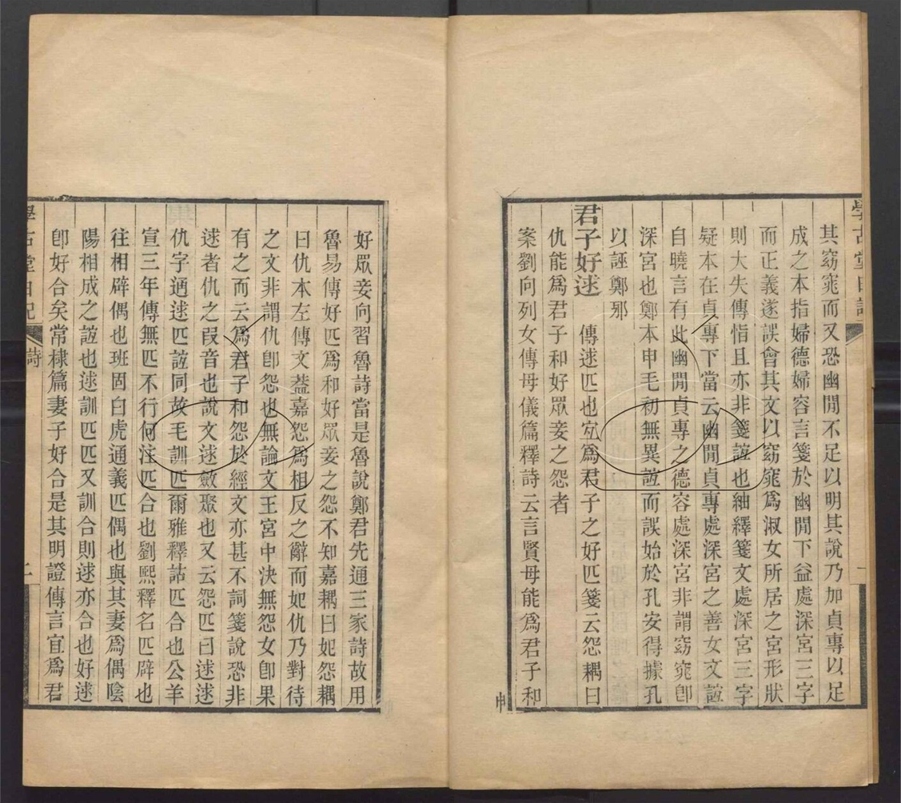 學古堂日記
其窈窕而又恐幽閒不足以明其說乃加貞專以足
成之本指婦德婦容言箋於幽閒下益處深宮三字
而正義遂誤會其文以窈窕爲淑女所居之宮形狀
則大失傳恉且亦非箋誼也紬繹箋文處深宮三字
疑本在貞專下當云幽閒貞專處深宮之善女文誼
自曉言有此幽閒貞專之德容處深宮非謂窈窕卽
深宮也鄭本申毛初無異誼而誤始於孔安得據孔
以誣鄭邪
君子好逑
傳逑匹也宐爲君子之好匹箋云怨耦曰
仇能爲君子和好眾妾之怨者
案劉向列女傳母儀篇釋詩云言賢母能爲君子和
好眾妾向習魯詩當是魯說鄭君先通三家詩故用
魯易傳好匹爲和好眾妾之怨不知嘉耦曰妃怨耦
曰仇本左傳文葢嘉怨爲相反之辭而妃仇乃對待
之文非謂仇卽怨也無論文王宮中決無怨女卽果
有之而云爲君子和怨於經文亦甚不詞箋說恐非
逑者仇之叚音也說文逑斂聚也又云怨匹曰逑逑
仇字通逑匹誼同故毛訓匹爾雅釋詁匹合也公羊
宣三年傳無匹不行何注匹合也劉熙釋名匹辟也
往相辟偶也班固白虎通義匹偶也與其妻爲偶陰
陽相成之誼也逑訓匹匹又訓合則逑亦合也好逑
卽好合矣常棣篇妻子好合是其明證傳言宜爲君
學古堂日記
詩